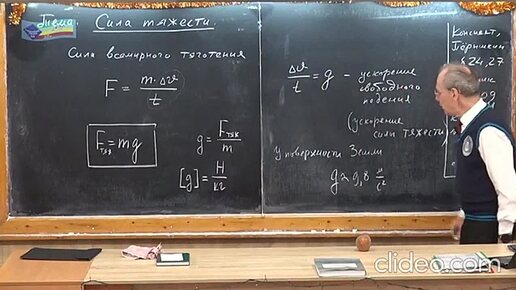 Тема. Сила тяжести.
Сила всемирного тяготения
F = m·Δv / t
Fтяж = mg
g = Fтяж / m
[g] = Н / кг
Δv / t = g - ускорение
свободного
падения
(ускорение
силы тяжести)
У поверхности Земли
g ≈ 9,8 м / с²
Конспект,
Пёрышкин
§24,27
clideo.com